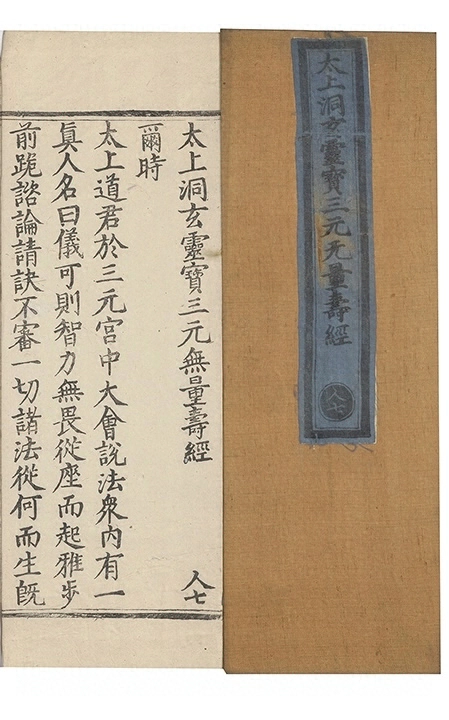 太上洞玄靈寶三元无量壽經
人七
太上洞玄靈寶三元無量壽經 人七
爾時
太上道君於三元宮中大會說法衆內有一
眞人名曰儀可則智力無畏從座而起雅步
前跪諮論請訣不審一切諸法從何而生旣